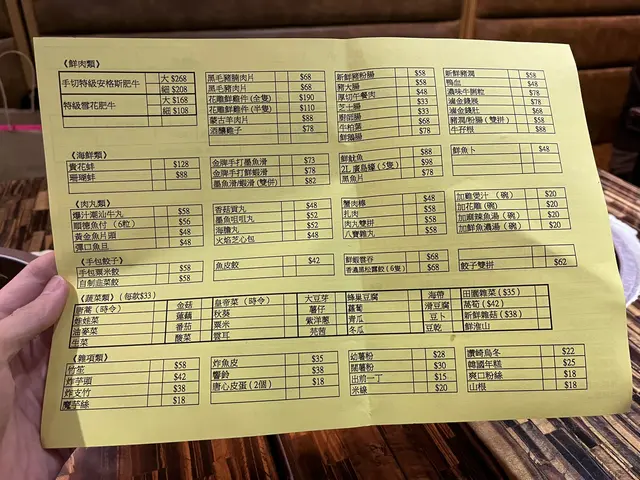 《鮮肉類》
手切特級安格斯肥牛 大 $268
細 $208
特級雪花肥牛 大 $168
細 $108
黑毛豬腩肉片 $68
黑毛豬肉片 $68
花雕鮮雞件(全隻) $190
花雕鮮雞件(半隻) $110
蒙古羊肉片 $88
酒釀雞子 $78
新鮮豬粉腸 $58
豬大腸 $58
厚切午餐肉 $48
芝士腸 $33
廚師腸 $33
牛柏葉 $68
鮮鵝腸 $78
新鮮豬潤 $58
鴨血 $48
滷味牛脷粒 $78
滷金錢展 $78
滷金錢肚 $68
豬潤/粉腸(雙拼) $58
牛孖根 $88
《海鮮類》
貴花蚌 $128
珊瑚蚌 $88
金牌手打墨魚滑 $73
金牌手打鮮蝦滑 $78
墨魚滑/蝦滑(雙併) $82
鮮魷魚 $88
2L 廣島蠔(5隻) $98
黑魚片 $78
鮮魚卜 $48
《肉丸類》
爆汁潮汕牛丸 $58
順德魚付(6粒) $56
黃金魚片頭 $48
彈口魚旦 $48
香菇貢丸 $48
墨魚咀咀丸 $52
海膽丸 $52
火焰芝心包 $48
蟹肉棒 $48
扎肉 $58
肉丸雙拼 $58
八寶雜丸 $58
加雞煲汁(碗) $20
加花雕(碗) $20
加麻辣魚湯(碗) $20
加鮮魚濃湯(碗) $20
《手包餃子》
手包粟米餃 $58
自制韭菜餃 $58
魚皮餃 $42
鮮蝦雲吞 $68
香濃黑松露餃(6隻) $68
餃子雙拼 $62
《蔬菜類》(每款$33)
新蒿(時令) 金菇 皇帝菜(時令) 大豆芽 蜂巢豆腐 海帶 田園雜菜($35)
娃娃菜 蓮藕 秋葵 薯仔 蘿蔔 滑豆腐 萵筍($42)
油麥菜 番茄 粟米 紫洋蔥 青瓜 豆卜 新鮮雜菇($38)
生菜 酸菜 雲耳 芫茜 冬瓜 豆乾 鮮淮山
《雜項類》
竹笙 $58
炸芋頭 $42
炸支竹 $38
魔芋絲 $18
炸魚皮 $35
響鈴 $38
唐心皮蛋(2個) $18
幼薯粉 $28
闊薯粉 $30
出前一丁 $15
米線 $20
讚崎烏冬 $22
韓國年糕 $25
爽口粉絲 $18
山根 $18